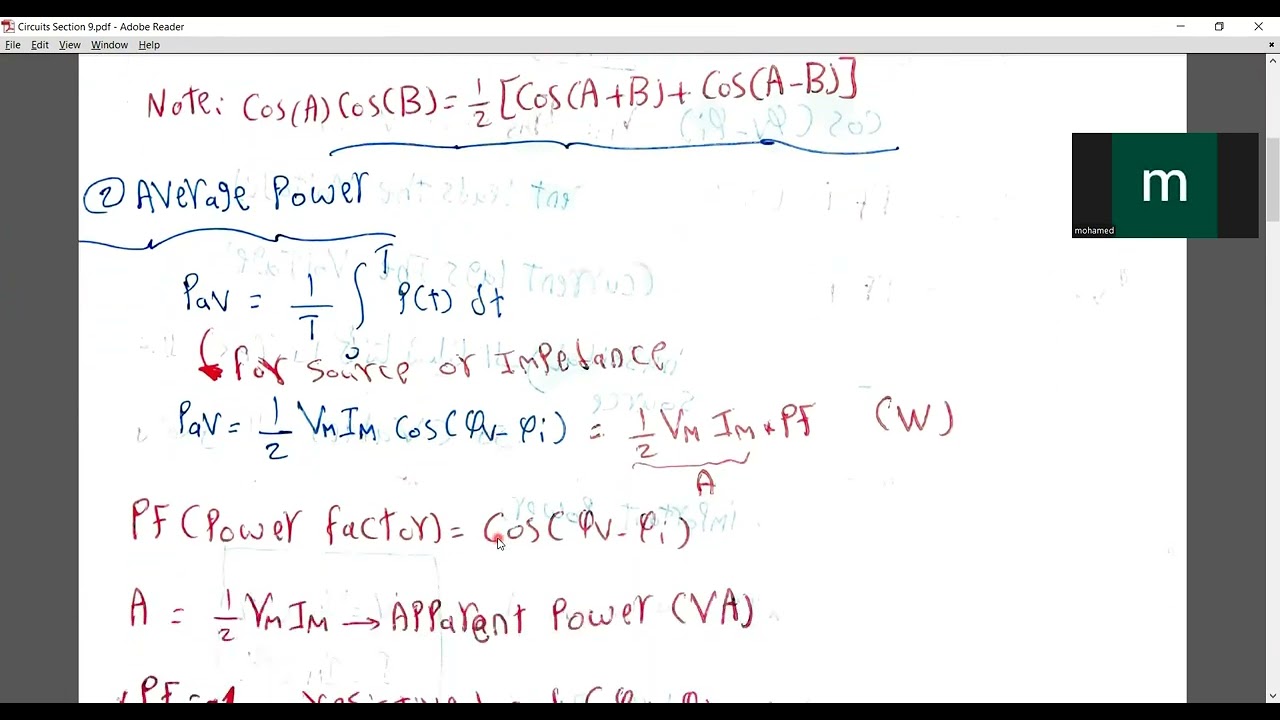 Circuits Section 9.pdf - Adobe Reader
File Edit View Window Help
Note: Cos(A) Cos(B) = 1/2 [Cos(A+B) + Cos(A-B)]
② Average Power
Pav = 1/T ∫₀ᵀ P(t) dt
for source or Impedance
Pav = 1/2 VM IM Cos(φv - φi) = 1/2 VM IM * PF (W)
A
PF (Power factor) = Cos(φv - φi)
A = 1/2 VM IM → Apparent Power (VA)
m
mohamed